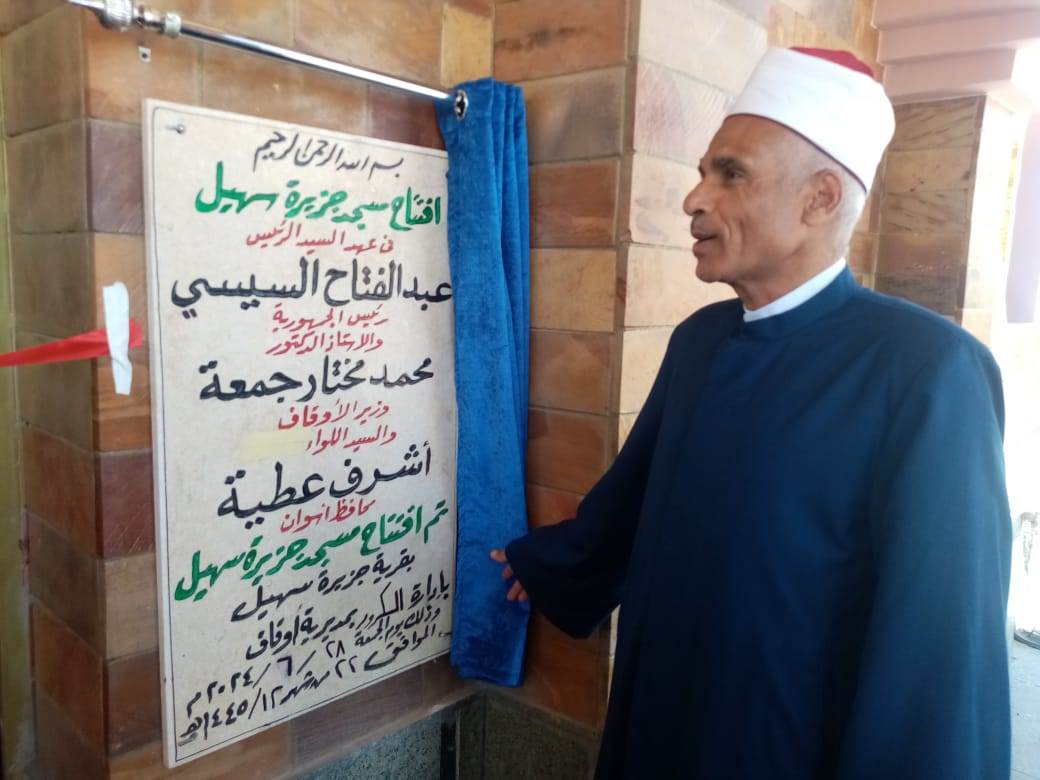 بسم الله الرحمن الرحيم
افتتاح مسجد جزيرة سهيل
فى عهد السيد الرئيس
عبد الفتاح السيسي
رئيس الجمهورية
والاستاذ الدكتور
محمد مختار جمعة
وزير الأوقاف
والسيد اللواء
أشرف عطية
محافظ اسوان
تم افتتاح مسجد جزيرة سهيل
بقرية جزيرة سهيل
بإدارة الكرور بمديرية أوقاف
وذلك يوم الجمعة ٢٨/٦/٢٠٢٤م
الموافق ٢٢ من شهر ١٢/١٤٤٥هـ